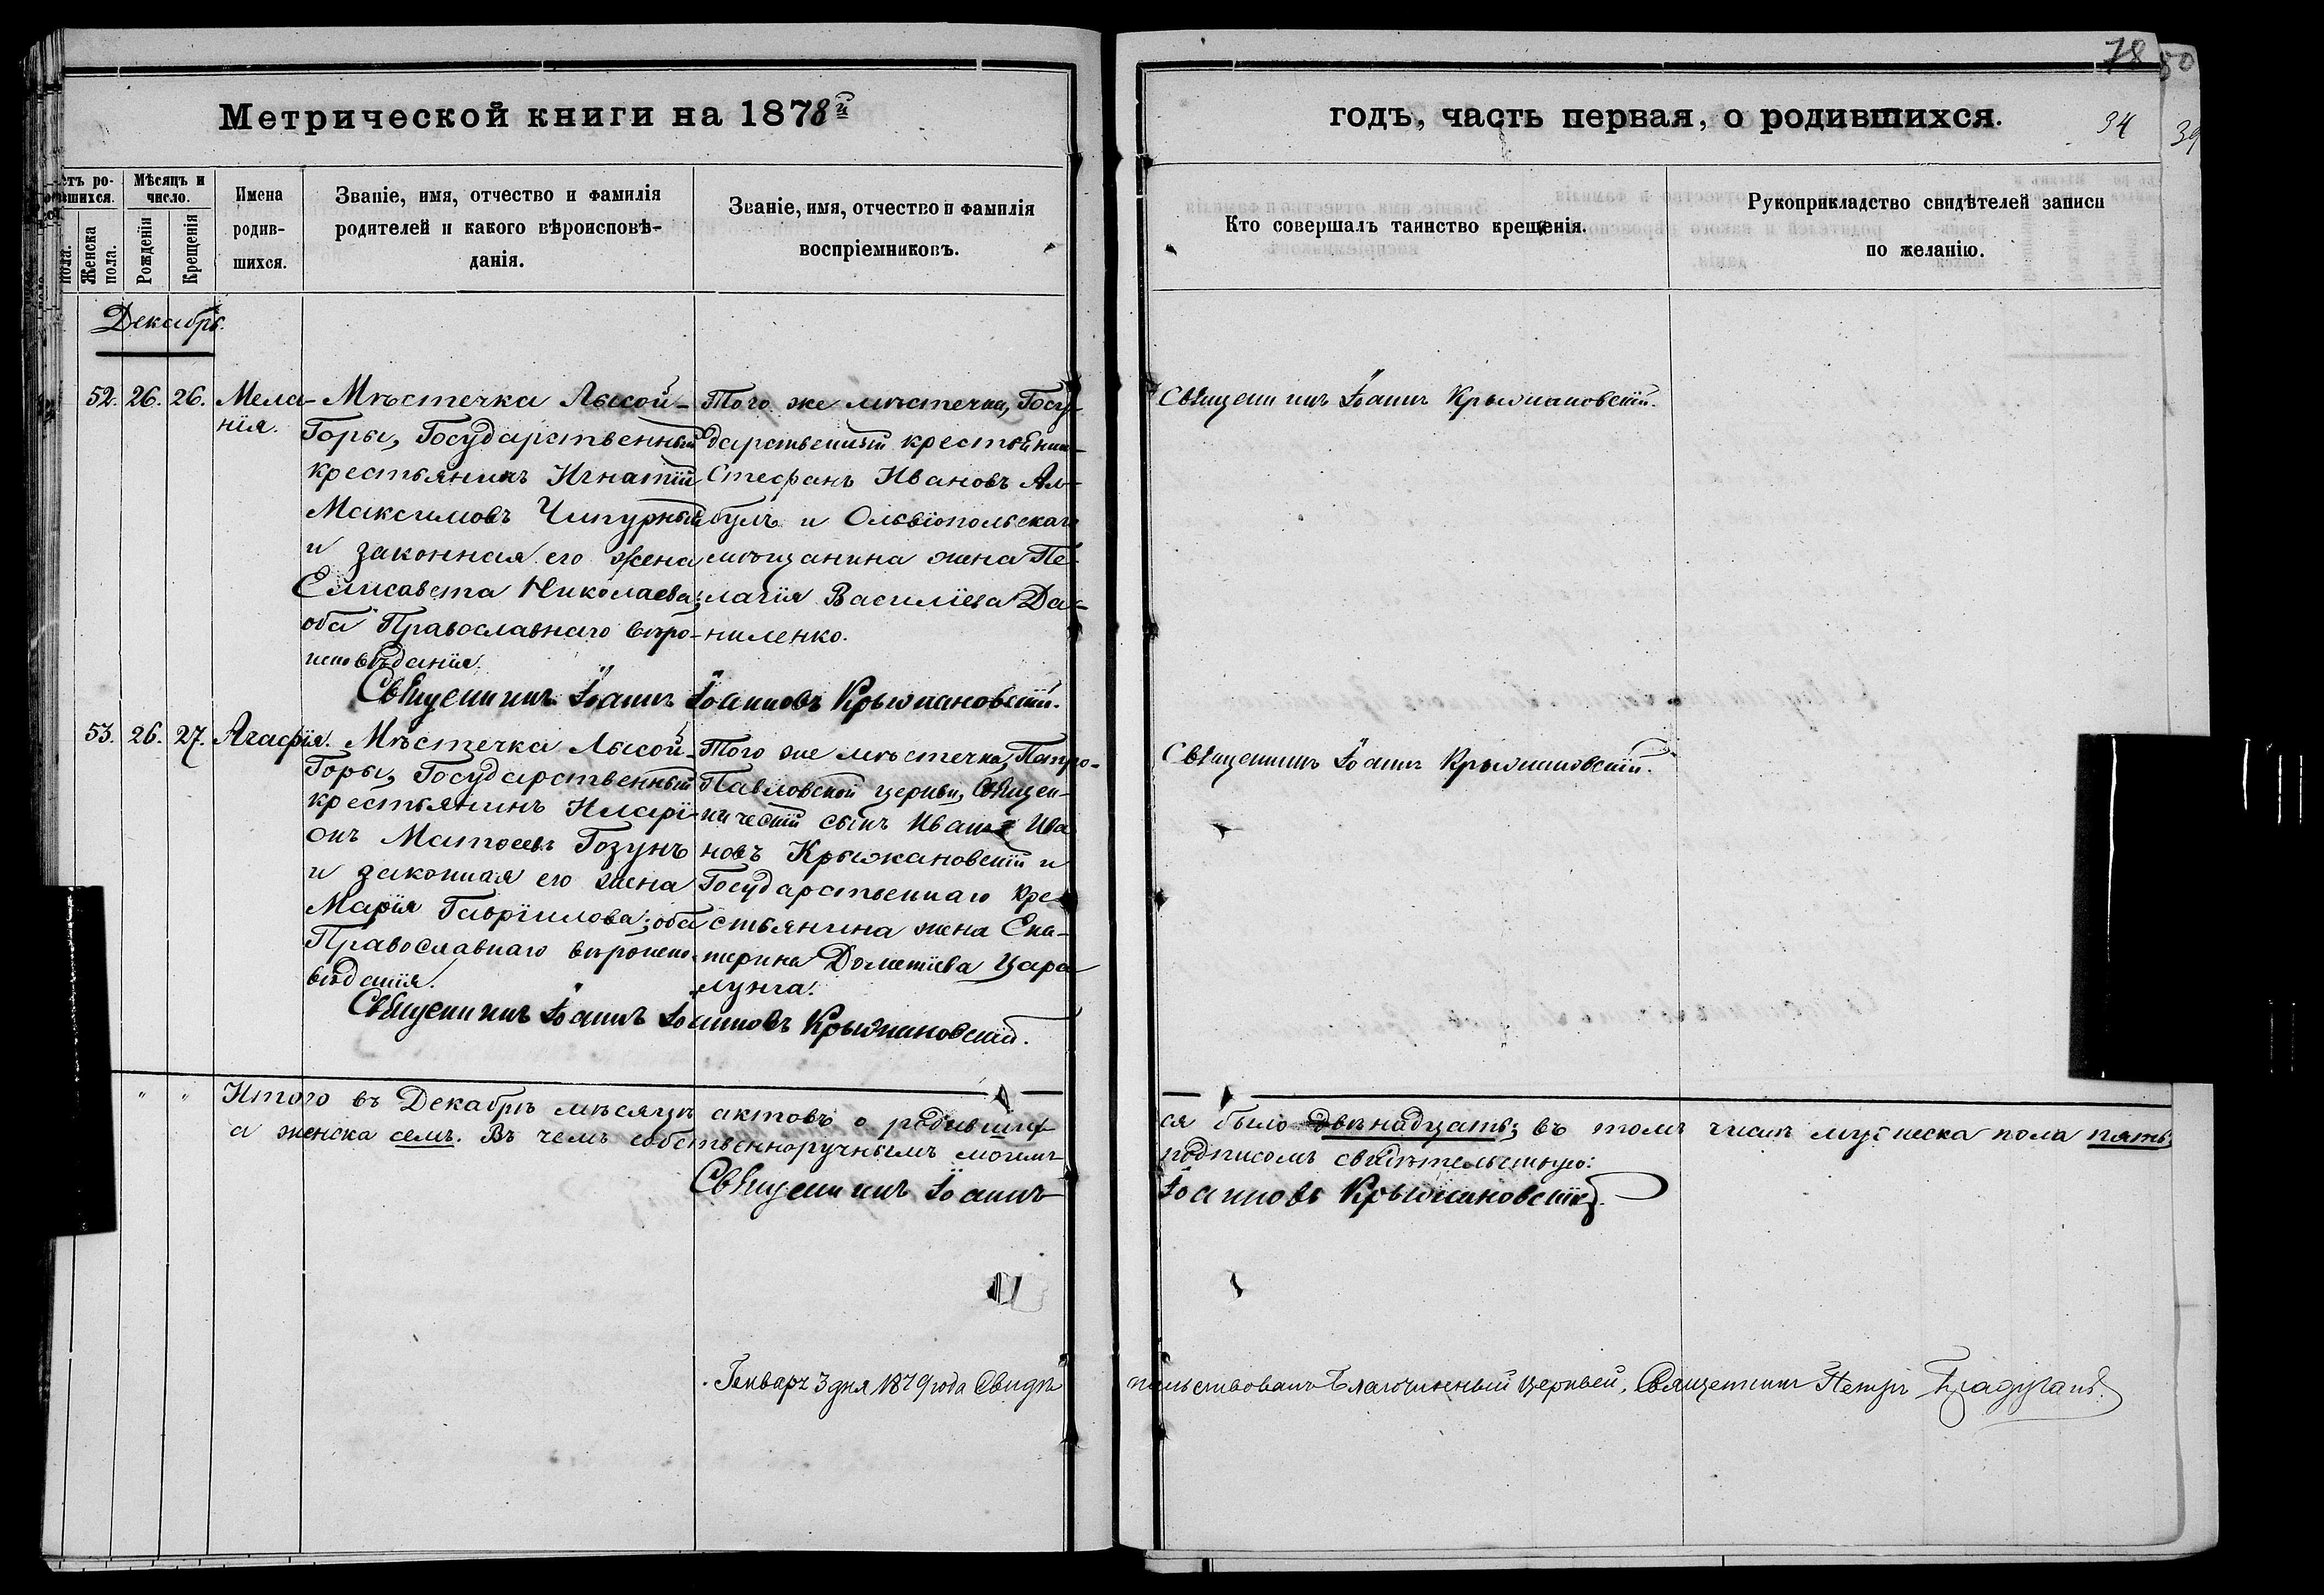 78 80
Метрической книги на 1878й
годъ, часть первая, о родившихся.
34 39
Мѣсяцъ и число.
Женска пола.
Рожденія
Крещенія
Имена родив-
шихся.
Званіе, имя, отчество и фамилія
родителей и какого вѣроисповѣ-
данія.
Званіе, имя, отчество и фамилія
воспріемниковъ.
Кто совершалъ таинство крещенія.
Рукоприкладство свидѣтелей записи
по желанію.
Декабрь.
52. 26. 26. Мела-
нія.
Мѣстечка Лысой-
Горы, Государственный
крестьянинъ Игнатій
Максимовъ Чипурный
и законная его жена
Елисавета Николаева;
оба Православнаго вѣро-
исповѣданія.
Того же мѣстечка, Госу-
дарственный крестьянин
Стефанъ Ивановъ Ал-
булъ и Ольвіопольскаго
мѣщанина жена Пе-
лагія Василіева Да-
ниленко.
Священникъ Іоаннъ Крыжановскій.
Священникъ Іоаннъ Іоанновъ Крыжановскій.
53. 26. 27. Агафія.
Мѣстечка Лысой-
Горы, Государственный
крестьянинъ Иларі-
онъ Матѳеевъ Гозунъ
и законная его жена
Марія Гавріилова; оба
Православнаго вѣроиспо-
вѣданія.
Того же мѣстечка, Петро-
Павловской церкви, Священ-
ническій сынъ Иванъ Ива
новъ Крыжановскій и
Государственнаго кре-
стьянина жена Ека-
терина Дометіева Цара
лунга.
Священникъ Іоаннъ Крыжановскій.
Священникъ Іоаннъ Іоанновъ Крыжановскій.
" " Итого въ Декабрѣ мѣсяцѣ актовъ о родивших
ся было двѣнадцать; въ томъ числѣ мужеска пола пять;
а женска семь. Въ чемъ собственноручнымъ моимъ
подписомъ свидѣтельствую:
Священникъ Іоаннъ
Іоанновъ Крыжановскій.
Генваря 3 дня 1879 года Свидѣ
тельствовалъ Благочинный церквей, Священникъ Петръ